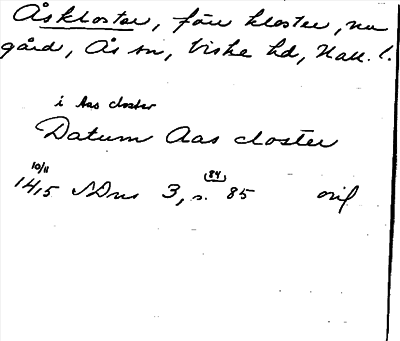 Åskloster, förr kloster, nu
gård, Ås sn, Viske hd, Hall. l.
i Aas closter
Datum Aas closter
10/11 (84)
1415 SDns 3, s. 85 orig